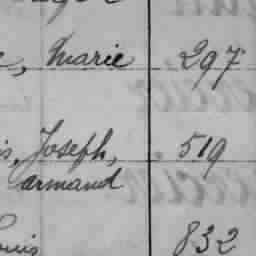 Marie 297
Joseph, 519
armand
Louis 832